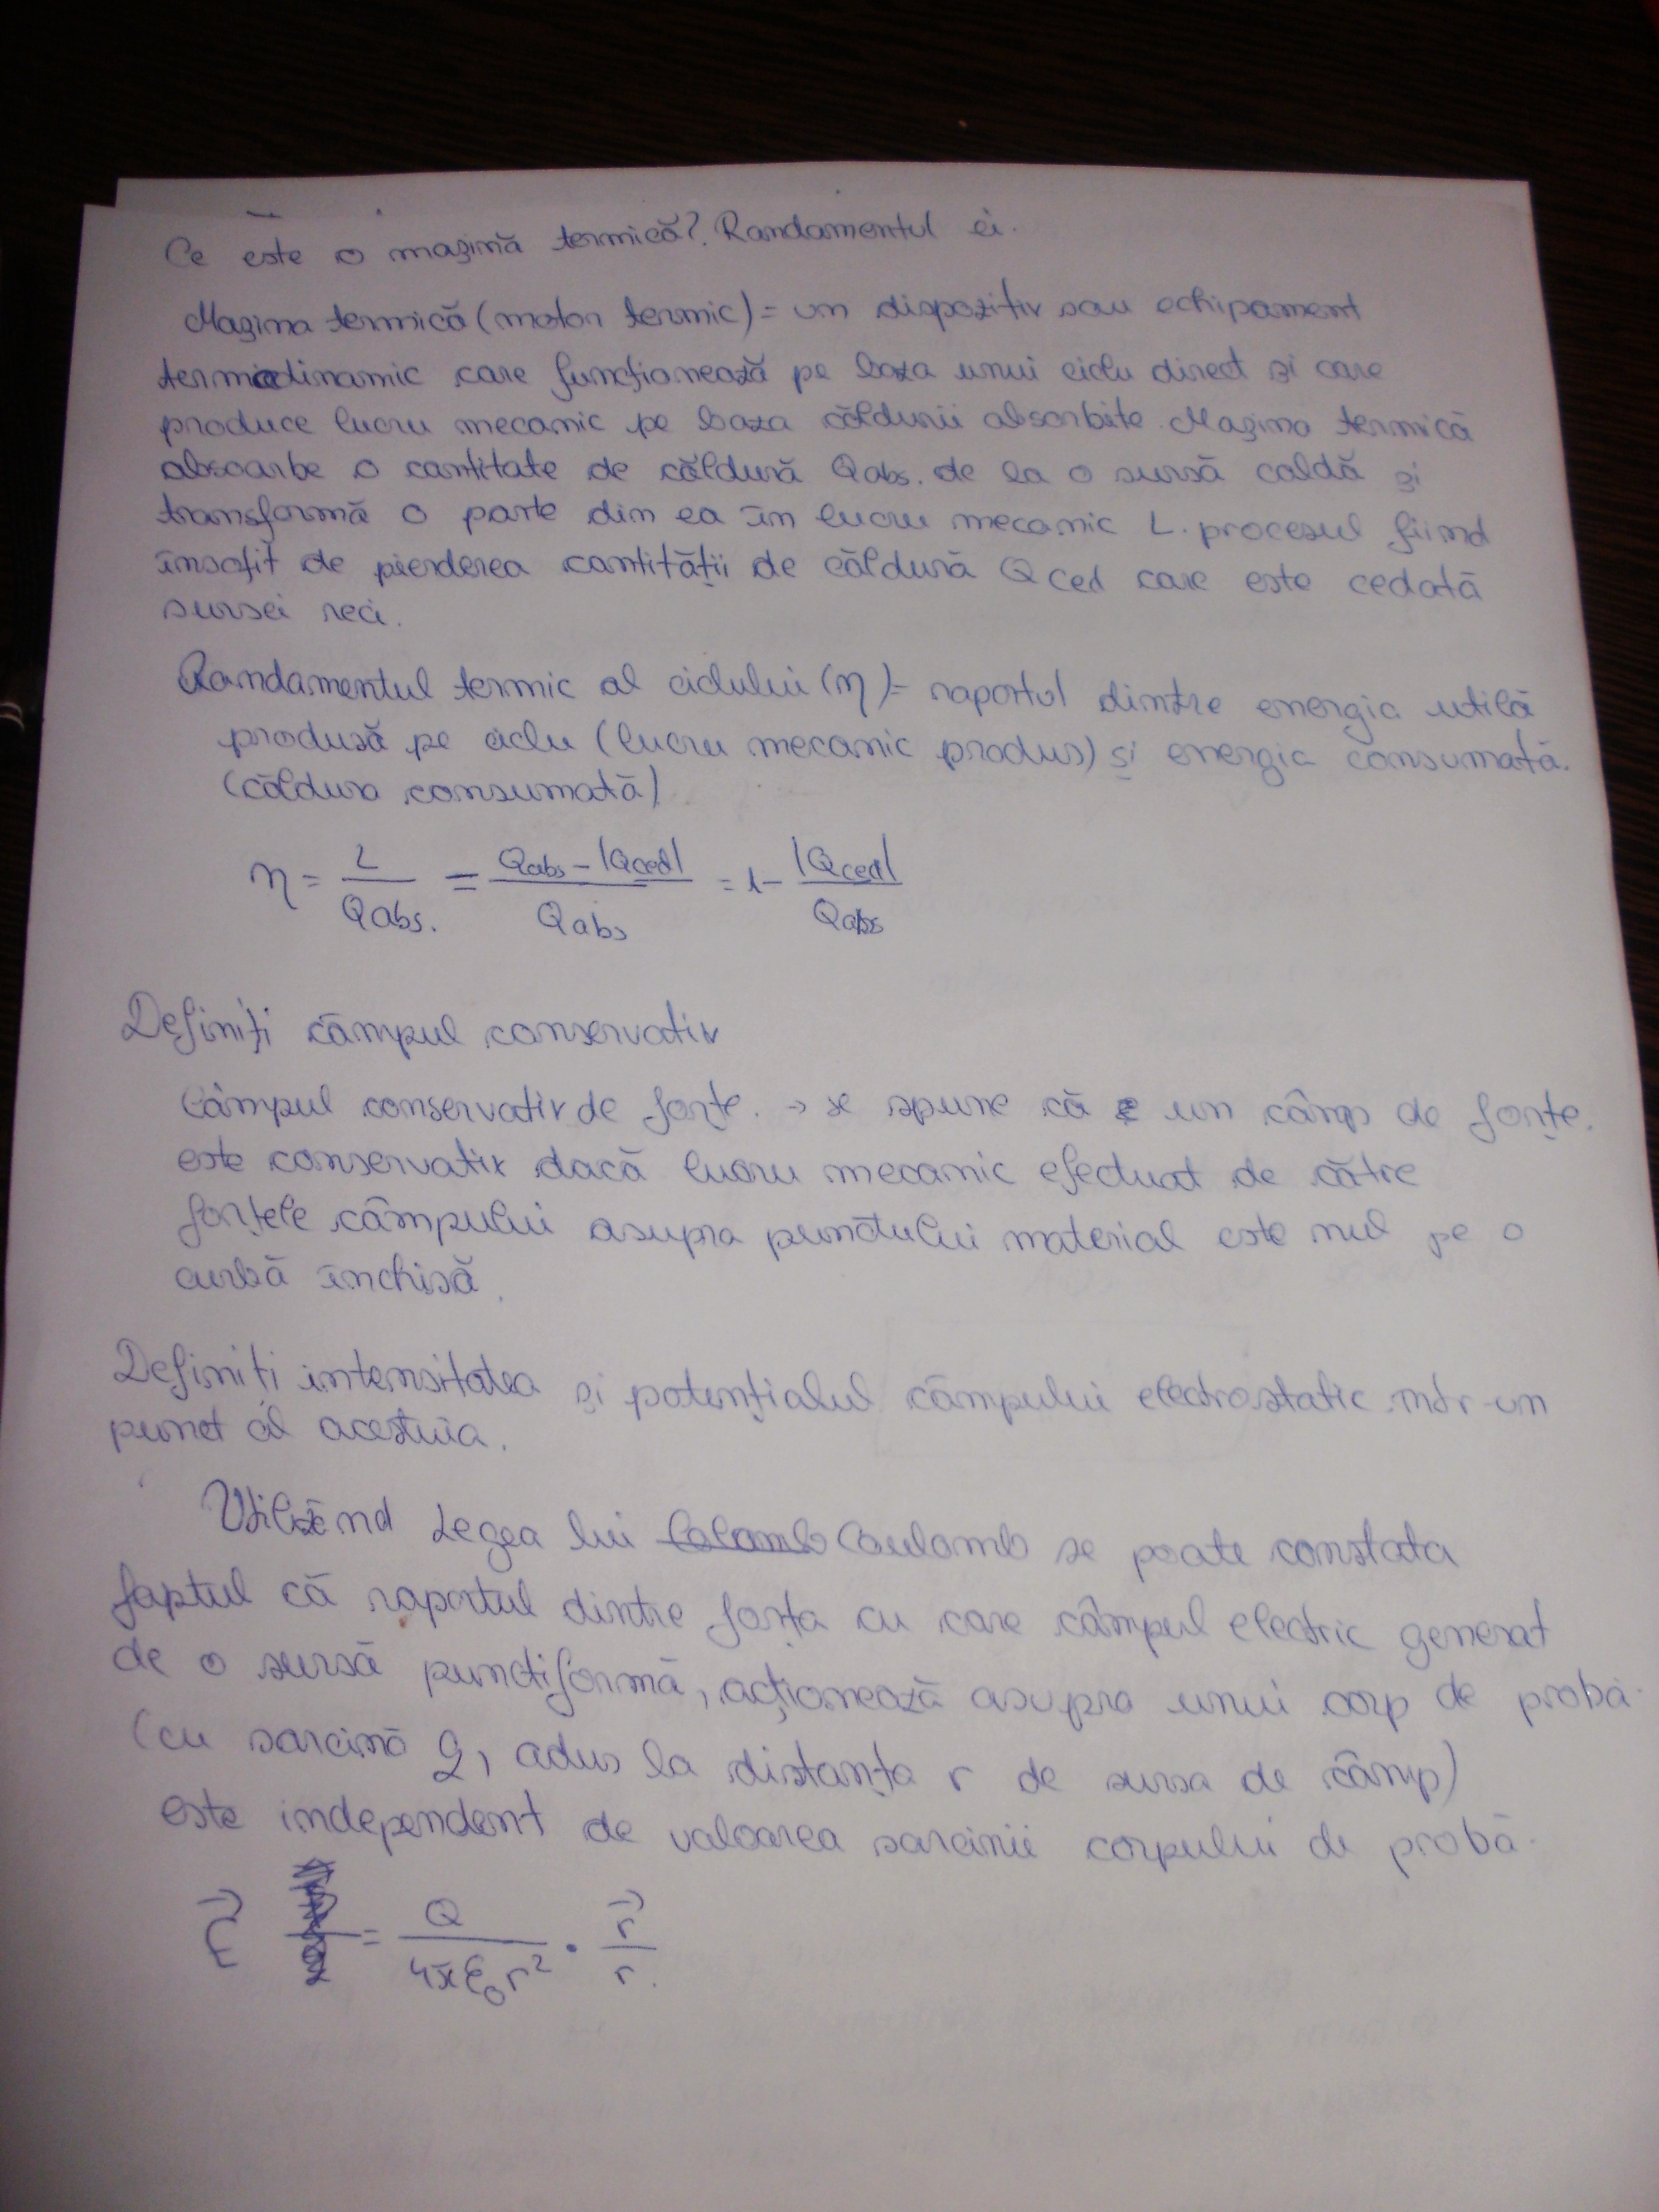 Ce este o mașină termică? Randamentul ei.
Mașina termică (motor termic) = un dispozitiv sau echipament
termodinamic care funcționează pe baza unui ciclu direct și care
produce lucru mecanic pe baza căldurii absorbite. Mașina termică
absoarbe o cantitate de căldură Qabs. de la o sursă caldă și
transformă o parte din ea în lucru mecanic L. procesul fiind
însoțit de pierderea cantității de căldură Qced care este cedată
sursei reci.
Randamentul termic al ciclului (η) = raportul dintre energia utilă
produsă pe ciclu (lucru mecanic produs) și energia consumată.
(căldura consumată)
η = L / Qabs. = Qabs - |Qced| / Qabs = 1 - |Qced| / Qabs
Definiți câmpul conservativ
Câmpul conservativ de forțe. → se spune că un câmp de forțe.
este conservativ dacă lucru mecanic efectuat de către
forțele câmpului asupra punctului material este nul pe o
curbă închisă.
Definiți intensitatea și potențialul câmpului electrostatic într-un
punct al acestuia.
Utilizând Legea lui Coulomb se poate constata
faptul că raportul dintre forța cu care câmpul electric generat
de o sursă punctiformă, acționează asupra unui corp de probă
(cu sarcină q, adus la distanța r de sursa de câmp)
este independent de valoarea sarcinii corpului de probă.
E⃗ = Q / 4πε₀r² · r⃗ / r.